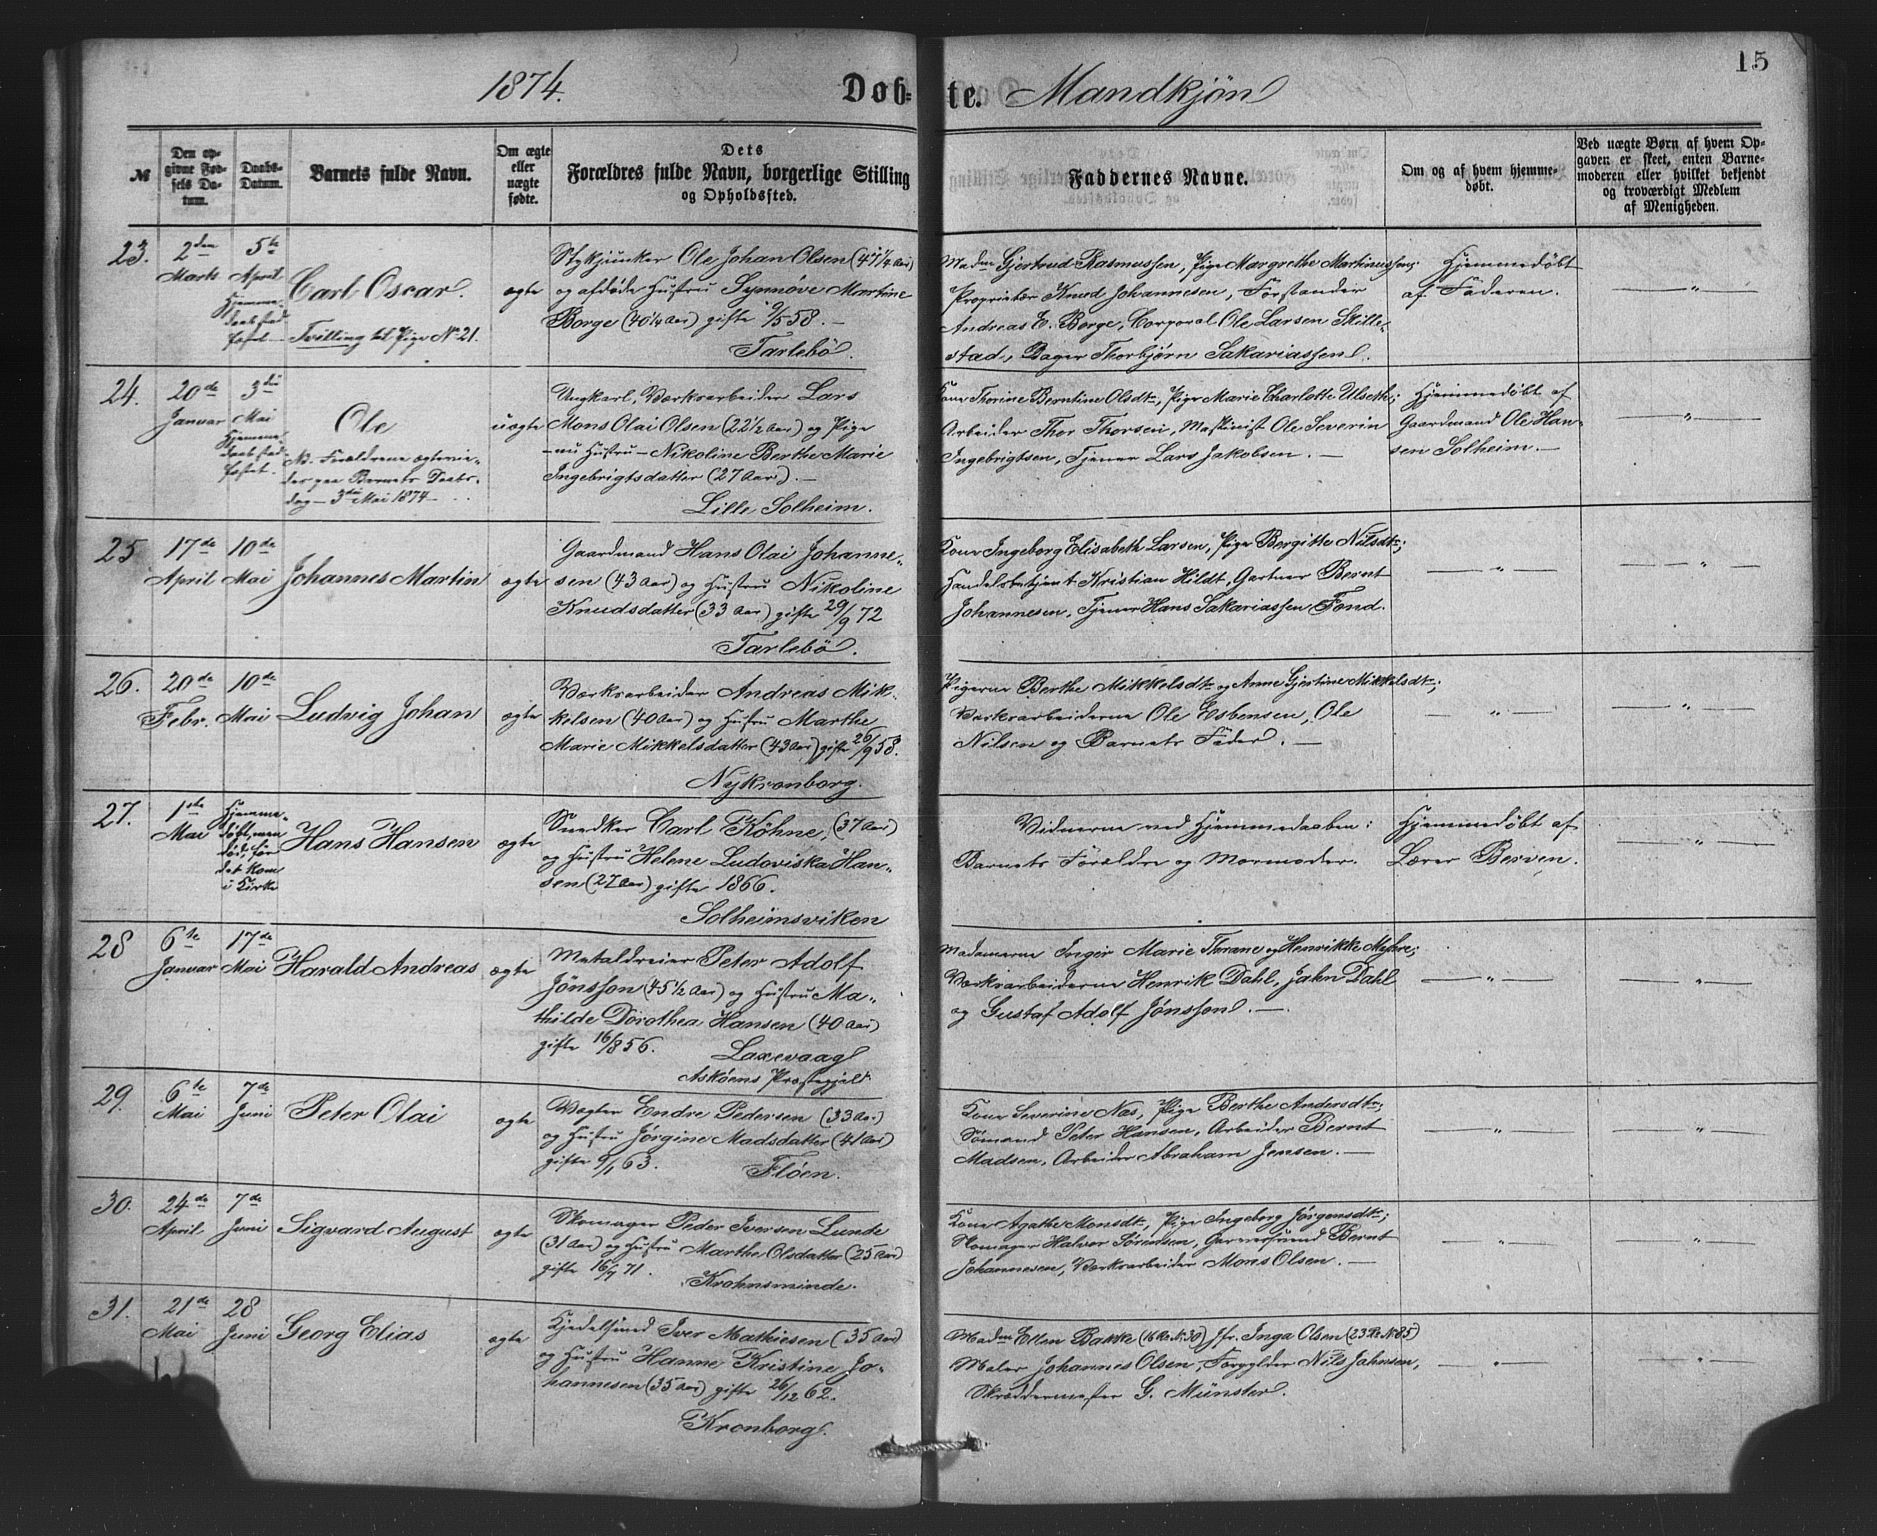 15
1874.
Døbte. Mandkjøn
№
Den opgivne Fødsels Datum.
Daabs-Datum.
Barnets fulde Navn.
Om ægte eller uægte fødte.
Dets
Forældres fulde Navn, borgerlige Stilling
og Opholdssted.
Faddernes Navne.
Om og af hvem hjemmedøbt.
Ved uægte Børn af hvem Opgaven er skeet, enten Barnemoderen eller hvilket bekjendt og troværdigt Medlem af Menigheden.
23.
2den
Marts
5te
April
Hjemme-
daab stad-
fæstet
Carl Oscar.
Tvilling til Pige No 21.
ægte
Stykjunker Ole Johan Olsen (47 1/4 Aar)
og afdøde Hustru Synnøve Martine
Borge (40 1/4 Aar) gifte 9/5 58.
Tarlebø.
Madm Gjertrud Rasmussen, Pige Margrethe Martinussen;
Proprietær Knud Johannesen, Forstander
Andreas E. Borge, Corporal Ole Larsen Skille-
stad, Bager Thorbjørn Sakariassen.
Hjemmedøbt
af Faderen.
— " —
24.
20de
Januar
3die
Mai
Hjemme-
daab stad-
fæstet.
Ole
NB. Forældrene ægtevie-
des paa Barnets Daabs-
dag 3die Mai 1874
uægte
Ungkarl, Værksarbeider Lars
Mons Olai Olsen (22 1/2 Aar) og Pige
- nu Hustru - Nikoline Berthe Marie
Ingebrigtsdatter (27 Aar).
Lille Solheim.
Kone Thorine Berntine Olsdtr, Pige Marie Charlotte Ulseth;
Arbeider Thor Thorsen, Maskinist Ole Severin
Ingebrigtsen, Tjener Lars Jakobsen.
Hjemmedøbt af
Gaardmand Ole Han-
sen Solheim.
— " —
25
17de
April
10de
Mai
Johannes Martin
ægte
Gaardmand Hans Olai Johanne-
sen (43 Aar) og Hustru Nikoline
Knudsdatter (33 Aar) gifte 29/9 72
Tarlebø.
Kone Ingeborg Elisabeth Larsen, Pige Bergitte Nilsdtr;
Handelsbetjent Kristian Hildt, Gartner Bernt
Johannesen, Tjener Hans Sakariassen Fond.
— " —
— " —
26.
20de
Febr.
10de
Mai
Ludvig Johan
ægte
Værksarbeider Andreas Mik-
kelsen (40 Aar) og Hustru Marthe
Marie Mikkelsdatter (43 Aar) gifte 26/9 58.
Nykronborg.
Pigerne Berthe Mikkelsdtr og Anne Gjertine Mikkelsdtr;
Værksarbeiderne Ole Esbensen, Ole
Nilsen og Barnets Fader.
— " —
— " —
27.
1ste
Mai
Hjemme-
døbt, men
død, før
det kom
i Kirke
Hans Hansen
ægte
Snedker Carl Köhne, (37 Aar)
og Hustru Helene Ludoviska Han-
sen (27 Aar) gifte 1866.
Solheimsviken
Vidnerne ved Hjemmedaaben:
Barnets Forældre og Mormoder.
Hjemmedøbt af
Lærer Berven.
— " —
28
6te
Januar
17de
Mai
Harald Andreas
ægte
Metaldreier Peter Adolf
Jönsson (45 1/2 Aar) og Hustru Ma-
thilde Dorothea Hansen (40 Aar)
gifte 16/8 56.
Laxevaag
Askøens Præstegjeld
Madamerne Inger Marie Thrane og Henrikke Myhre;
Værksarbeiderne Henrik Dahl, Jahn Dahl
og Gustaf Adolf Jönsson.
— " —
— " —
29.
6te
Mai
7de
Juni
Peter Olai
ægte
Vægter Endre Pedersen (33 Aar)
og Hustru Jørgine Madsdatter (41 Aar)
gifte 9/1 63.
Fløen.
Kone Severine Næs, Pige Berthe Andersdtr;
Sømand Peter Hansen, Arbeider Bernt
Madsen, Arbeider Abraham Jensen.
— " —
— " —
30.
24de
April
7de
Juni
Sigvard August
ægte
Skomager Peder Iversen Lunde
(31 Aar) og Hustru Marthe Olsdatter (25 Aar)
gifte 16/7 71.
Krohnsminde.
Kone Agathe Monsdtr, Pige Ingeborg Jørgensdtr;
Skomager Halvor Sørensen, Garversvend Bernt
Johannesen, Værksarbeider Mons Olsen.
— " —
— " —
31.
21de
Mai
28
Juni
Georg Elias
ægte
Kjedelsmed Iver Mathiesen (35 Aar)
og Hustru Hanne Kristine Jo-
hannesen (35 Aar) gifte 26/12 62.
Kronborg.
Madm Ellen Bakke (16 No 30) Jfr. Inga Olsen (23 No 85)
Maler Johannes Olsen, Forgylder Nils Jahnsen,
Skræddermester G. Münster.
— " —
— " —